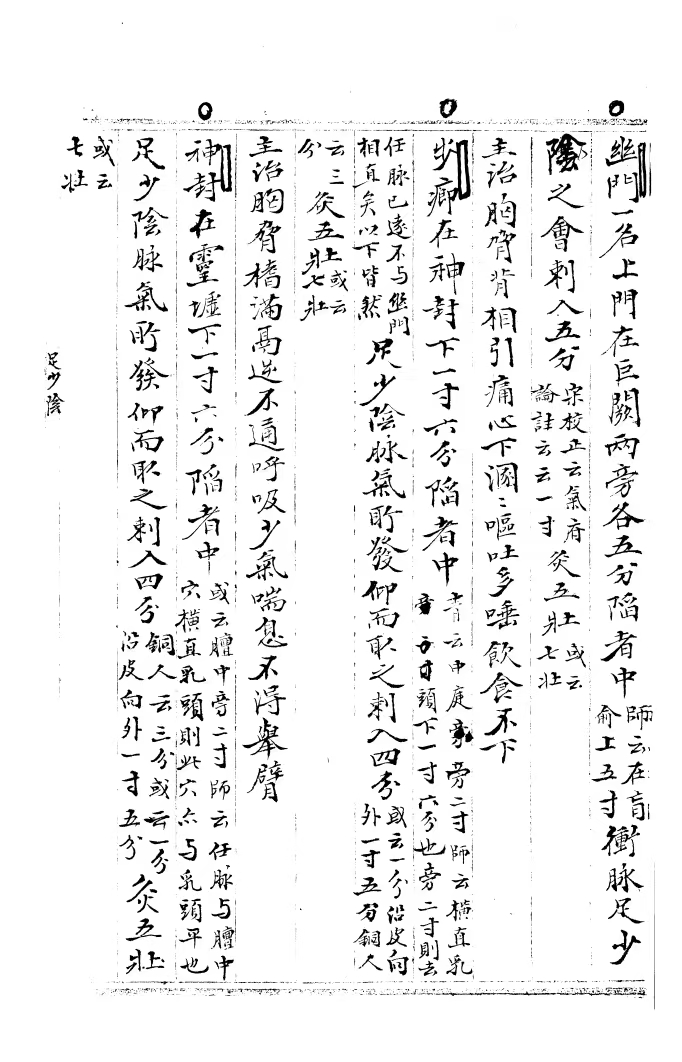 幽門一名上門在巨闕兩旁各五分陷者中師云在肓俞上五寸衝脉足少
陰之會刺入五分宋校正云氣府論註云云一寸灸五壯或云七壯
主治胸脅背相引痛心下溷〻嘔吐多唾飲食不下
步廊在神封下一寸六分陷者中一云中庭旁二寸師云橫直乳頭下一寸六分也旁二寸則去
任脉已遠不与幽門相直矣以下皆然足少陰脉氣所發仰而取之刺入四分或云一分沿皮向外一寸五分銅人
云三分灸五壯或云七壯
主治胸脅榰滿鬲逆不通呼吸少氣喘息不得舉臂
神封在靈墟下一寸六分陷者中或云膻中旁二寸師云任脉与膻中穴橫直乳頭則此穴亦与乳頭平也
足少陰脉氣所發仰而取之刺入四分銅人云三分或云一分沿皮向外一寸五分灸五壯
或云七壯
足少陰